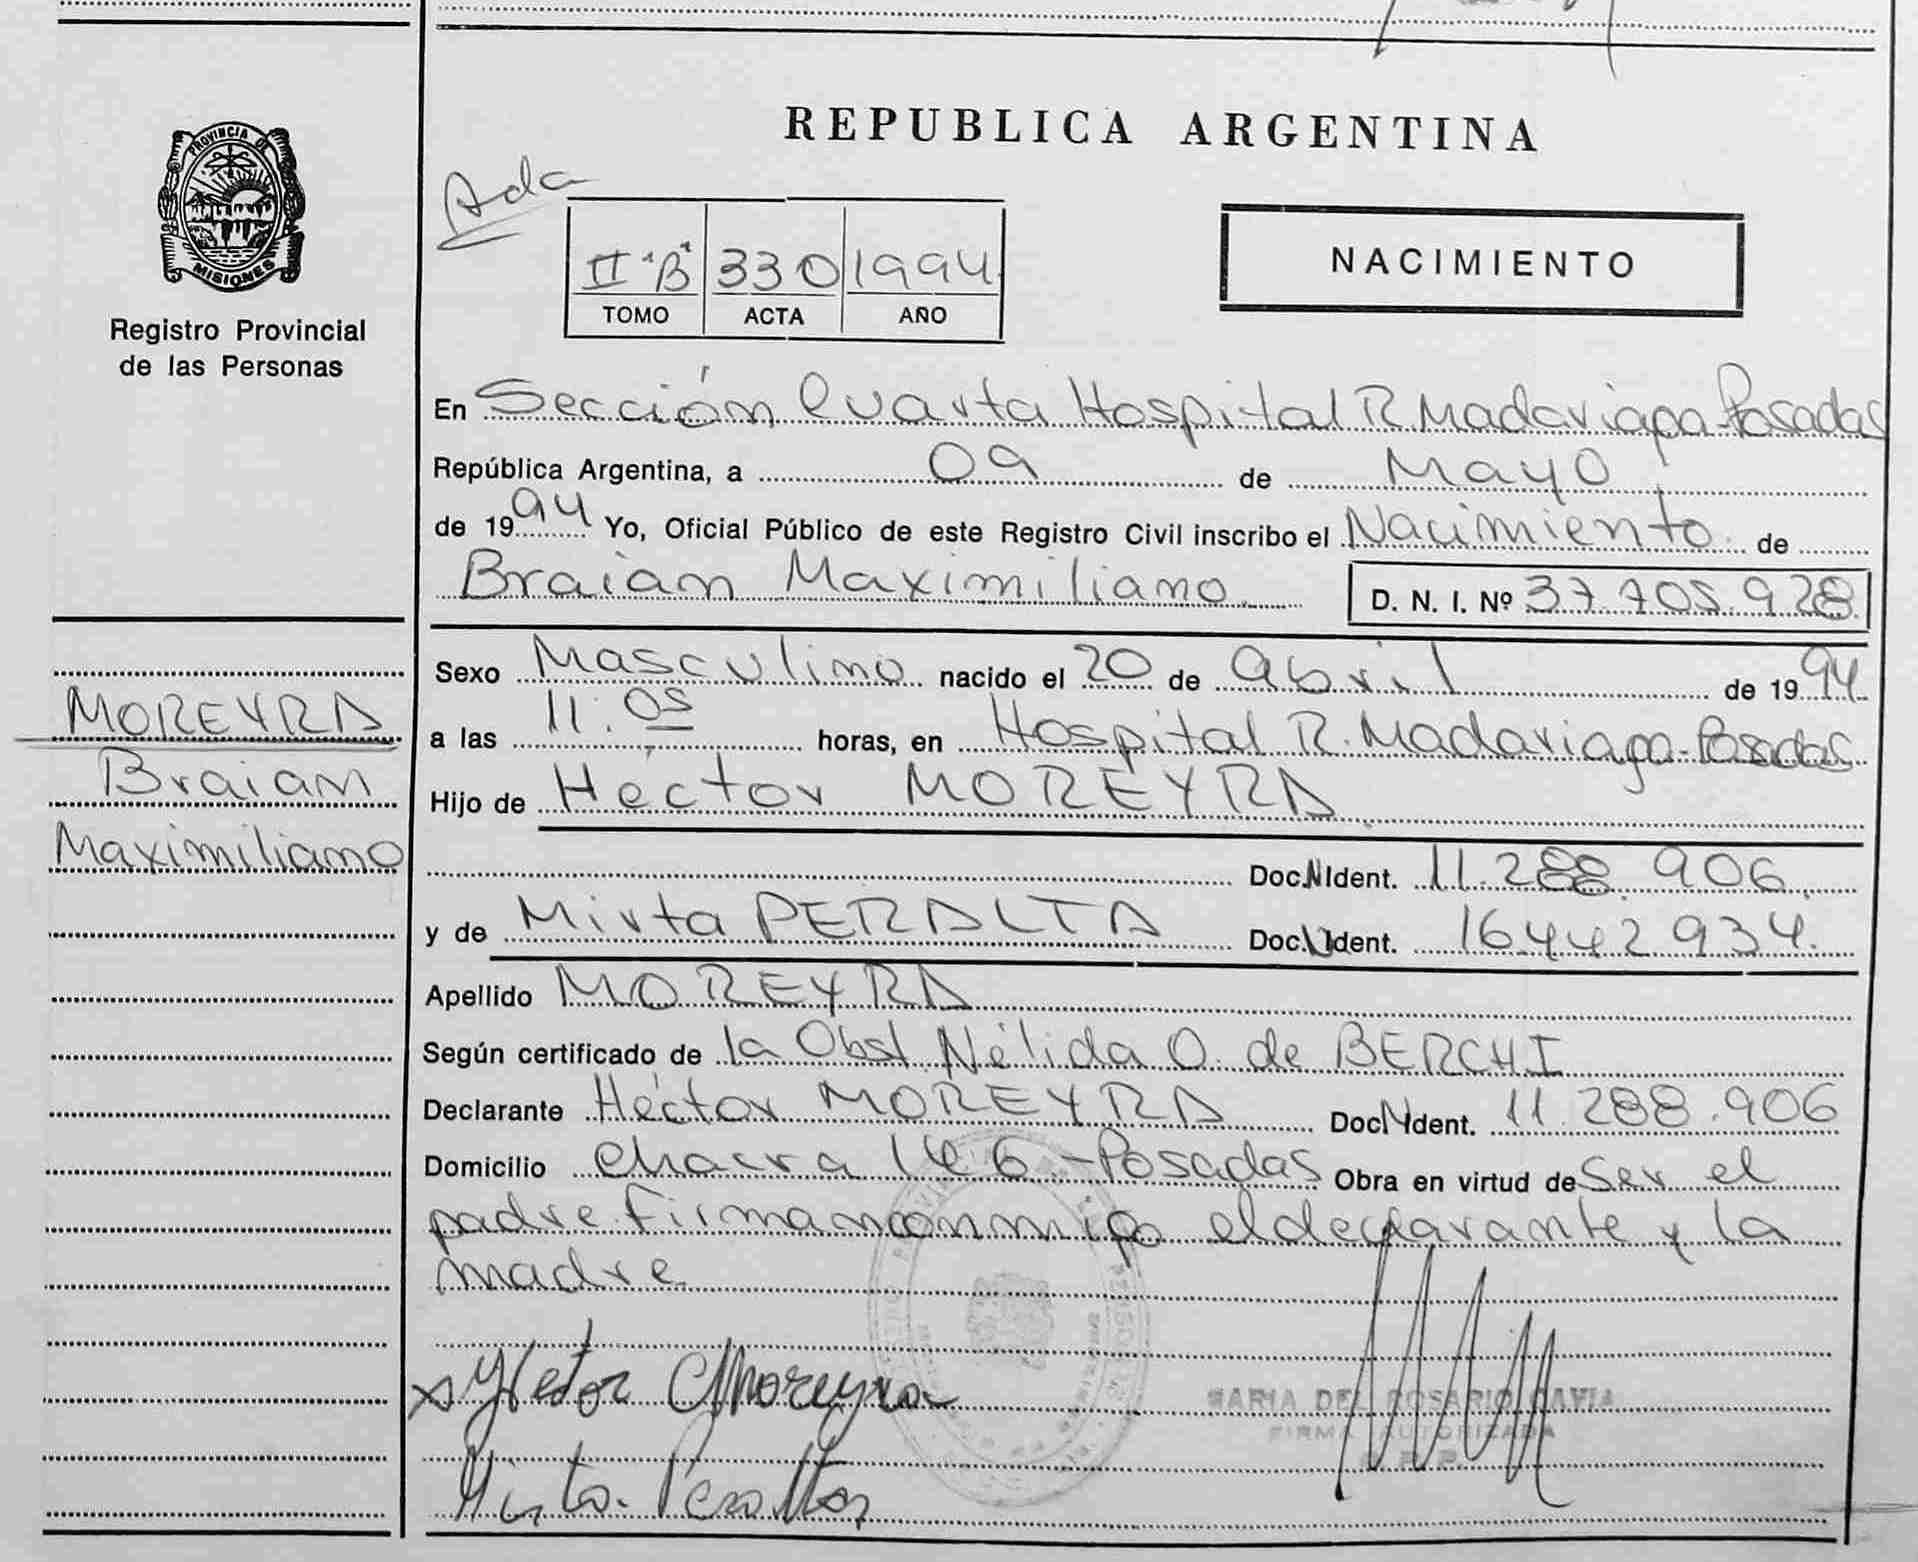 REPUBLICA ARGENTINA
PROVINCIA DE
MISIONES
Registro Provincial
de las Personas
Ada
II "B" 330 1994
TOMO ACTA AÑO
NACIMIENTO
En Sección Cuarta Hospital R. Madariaga-Posadas
República Argentina, a 09 de Mayo
de 1994 Yo, Oficial Público de este Registro Civil inscribo el Nacimiento de
Braian Maximiliano D. N. I. Nº 37.705.928
Sexo Masculino nacido el 20 de abril de 1994
a las 11:05 horas, en Hospital R. Madariaga-Posadas
Hijo de Héctor MOREYRA
Doc.N.Ident. 11.288.906
y de Mirta PERALTA Doc.N.Ident. 16442934.
Apellido MOREYRA
Según certificado de la Obst Nélida O. de BERCHI
Declarante Héctor MOREYRA Doc.N.Ident. 11.288.906
Domicilio chacra 146-Posadas Obra en virtud de ser el
padre firman conmigo el declarante y la
madre
MOREYRA
Braian
Maximiliano
x Hector Moreyra
Mirta Peralta
MARIA DEL ROSARIO
FIRMA AUTORIZADA